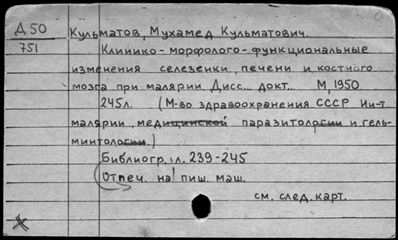 Д 50 Кульматов, Мухамед Кульматович.
751 Клинико-морфолого-функциональные
изменения селезенки, печени и костного
мозга при малярии. Дисс... докт... М, 1950
245л. (М-во здравоохранения СССР Ин-т
малярии, медицинской паразитологии и гель-
минтологии.)
Библиогр. л. 239-245
Отпеч. на пиш. маш.
см. след. карт.